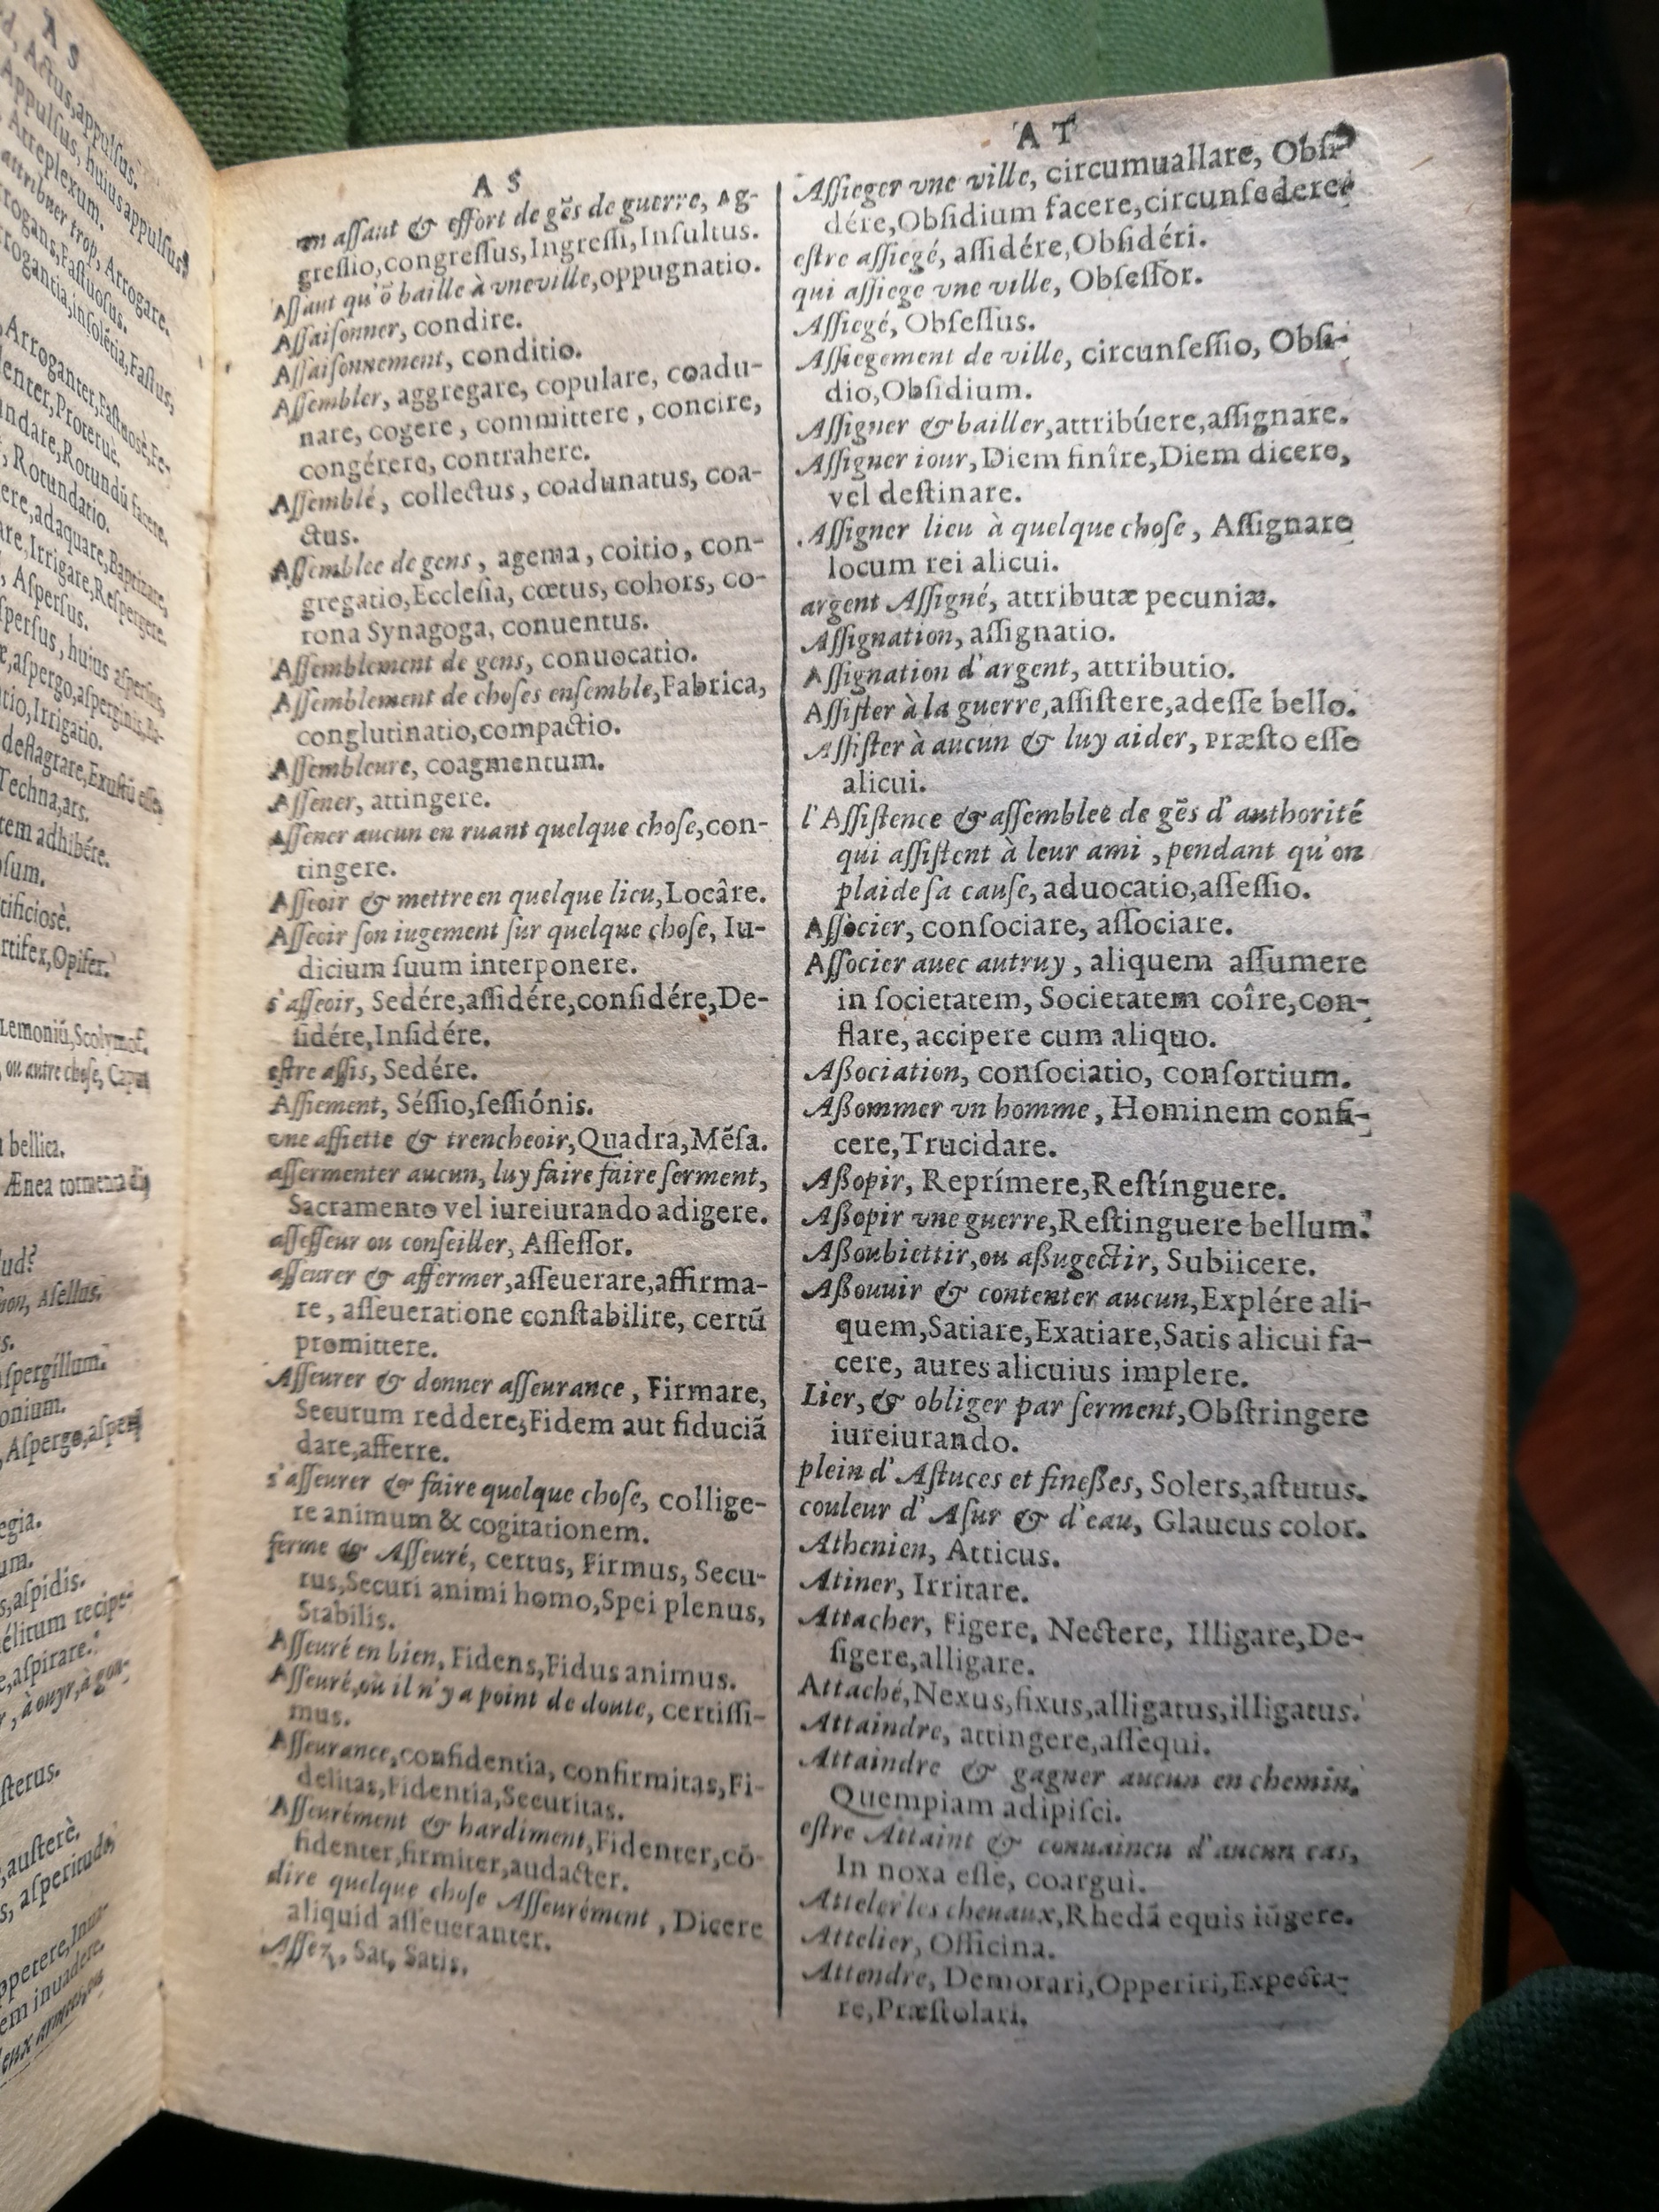 A S
d, Actus, appulsus.
Appulsus, huius appulsus
Atreplexum.
attribuer trop, Arrogare.
rogans, Fastuosus.
rogantia, insolētia, Fastus,
Arroganter, Fastuosè, Fe-
enter, Proteruè.
undare, Rotundū facere.
, Rotundatio.
ere, adaquare, Baptizare,
are, Irrigare, Respergere.
, Aspersus.
spersus, huius aspersus,
tio, Irrigatio.
deflagrare, Exustū esse
Techna, ars.
tem adhibére.
osum.
tificiosè.
rtifex, Opifex.
ou autre chose, Caput
bellica.
Ænea tormenta
lud?
Asellus.
spergillum.
onium.
Aspergo, asper
egia.
um.
s, aspidis.
élitum recipe-
e, aspirare.
, à ouyr, à gou-
sterus.
, austerè.
s, asperitudo,
ppetere, Inua-
em inuadere.
A S
un assaut & effort de gēs de guerre, Ag-
gressio, congressus, Ingressi, Insultus.
Assaut qu'ō baille à vne ville, oppugnatio.
Assaisonner, condire.
Assaisonnement, conditio.
Assembler, aggregare, copulare, coadu-
nare, cogere, committere, concire,
congérere, contrahere.
Assemblé, collectus, coadunatus, coa-
ctus.
Assemblee de gens, agema, coitio, con-
gregatio, Ecclesia, cœtus, cohors, co-
rona Synagoga, conuentus.
Assemblement de gens, conuocatio.
Assemblement de choses ensemble, Fabrica,
conglutinatio, compactio.
Assembleure, coagmentum.
Assener, attingere.
Assener aucun en ruant quelque chose, con-
tingere.
Asseoir & mettre en quelque lieu, Locâre.
Asseoir son iugement sur quelque chose, Iu-
dicium suum interponere.
s'asseoir, Sedére, assidére, considére, De-
sidére, Insidére.
estre assis, Sedére.
Assiement, Séssio, sessiónis.
vne assiette & trencheoir, Quadra, Mēsa.
assermenter aucun, luy faire faire serment,
Sacramento vel iureiurando adigere.
assesseur ou conseiller, Assessor.
asseurer & affermer, asseuerare, affirma-
re, asseueratione constabilire, certū
promittere.
Asseurer & donner asseurance, Firmare,
Securum reddere, Fidem aut fiduciā
dare, afferre.
s'asseurer & faire quelque chose, collige-
re animum & cogitationem.
ferme & Asseuré, certus, Firmus, Secu-
rus, Securi animi homo, Spei plenus,
Stabilis.
Asseuré en bien, Fidens, Fidus animus.
Asseuré, où il n'y a point de doute, certissi-
mus.
Asseurance, confidentia, confirmitas, Fi-
delitas, Fidentia, Securitas.
Asseurément & hardiment, Fidenter, cō-
fidenter, firmiter, audacter.
dire quelque chose Asseurément, Dicere
aliquid asseueranter.
Assez, Sat, Satis.
A T
Assieger vne ville, circumuallare, Obsi-
dére, Obsidium facere, circunsedere.
estre assiegé, assidére, Obsidéri.
qui assiege vne ville, Obsessor.
Assiegé, Obsessus.
Assiegement de ville, circunsessio, Obsi-
dio, Obsidium.
Assigner & bailler, attribúere, assignare.
Assigner iour, Diem finîre, Diem dicere,
vel destinare.
Assigner lieu à quelque chose, Assignare
locum rei alicui.
argent Assigné, attributæ pecuniæ.
Assignation, assignatio.
Assignation d'argent, attributio.
Assister à la guerre, assistere, adesse bello.
Assister à aucun & luy aider, Præsto esse
alicui.
l'Assistence & assemblee de gēs d'authorité
qui assistent à leur ami, pendant qu'on
plaide sa cause, aduocatio, assessio.
Associer, consociare, associare.
Associer auec autruy, aliquem assumere
in societatem, Societatem coîre, con-
flare, accipere cum aliquo.
Aßociation, consociatio, consortium.
Aßommer vn homme, Hominem confi-
cere, Trucidare.
Aßopir, Reprímere, Restínguere.
Aßopir vne guerre, Restinguere bellum.
Aßoubiettir, ou aßugectir, Subiicere.
Aßouuir & contenter aucun, Explére ali-
quem, Satiare, Exatiare, Satis alicui fa-
cere, aures alicuius implere.
Lier, & obliger par serment, Obstringere
iureiurando.
plein d'Astuces et fineßes, Solers, astutus.
couleur d'Asur & d'eau, Glaucus color.
Athenien, Atticus.
Atiner, Irritare.
Attacher, Figere, Nectere, Illigare, De-
figere, alligare.
Attaché, Nexus, fixus, alligatus, illigatus.
Attaindre, attingere, assequi.
Attaindre & gagner aucun en chemin,
Quempiam adipisci.
estre Attaint & conuaincu d'aucun cas,
In noxa esse, coargui.
Atteler les cheuaux, Rhedā equis iūgere.
Attelier, Officina.
Attendre, Demorari, Opperiri, Expecta-
re, Præstolari.